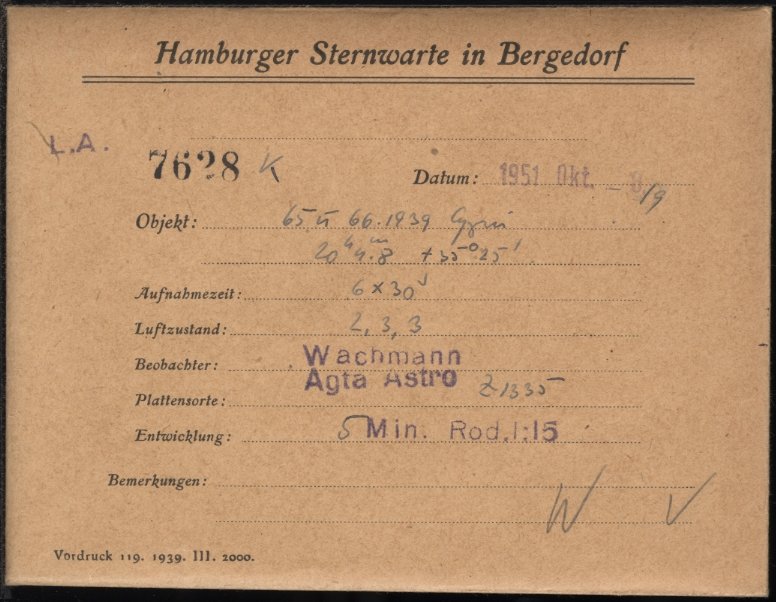 Hamburger Sternwarte in Bergedorf
L.A.
7628 K Datum: 1951 Okt. - 8/9
Objekt: 65 u 66.1939 Cygni
20ʰ4.ᵐ8 +35°25'
Aufnahmezeit: 6 × 30
Luftzustand: 2, 3, 3
Beobachter: Wachmann
Plattensorte: Agfa Astro Z1335
Entwicklung: 5 Min. Rod.1:15
Bemerkungen:
W V
Vordruck 119. 1939. III. 2000.